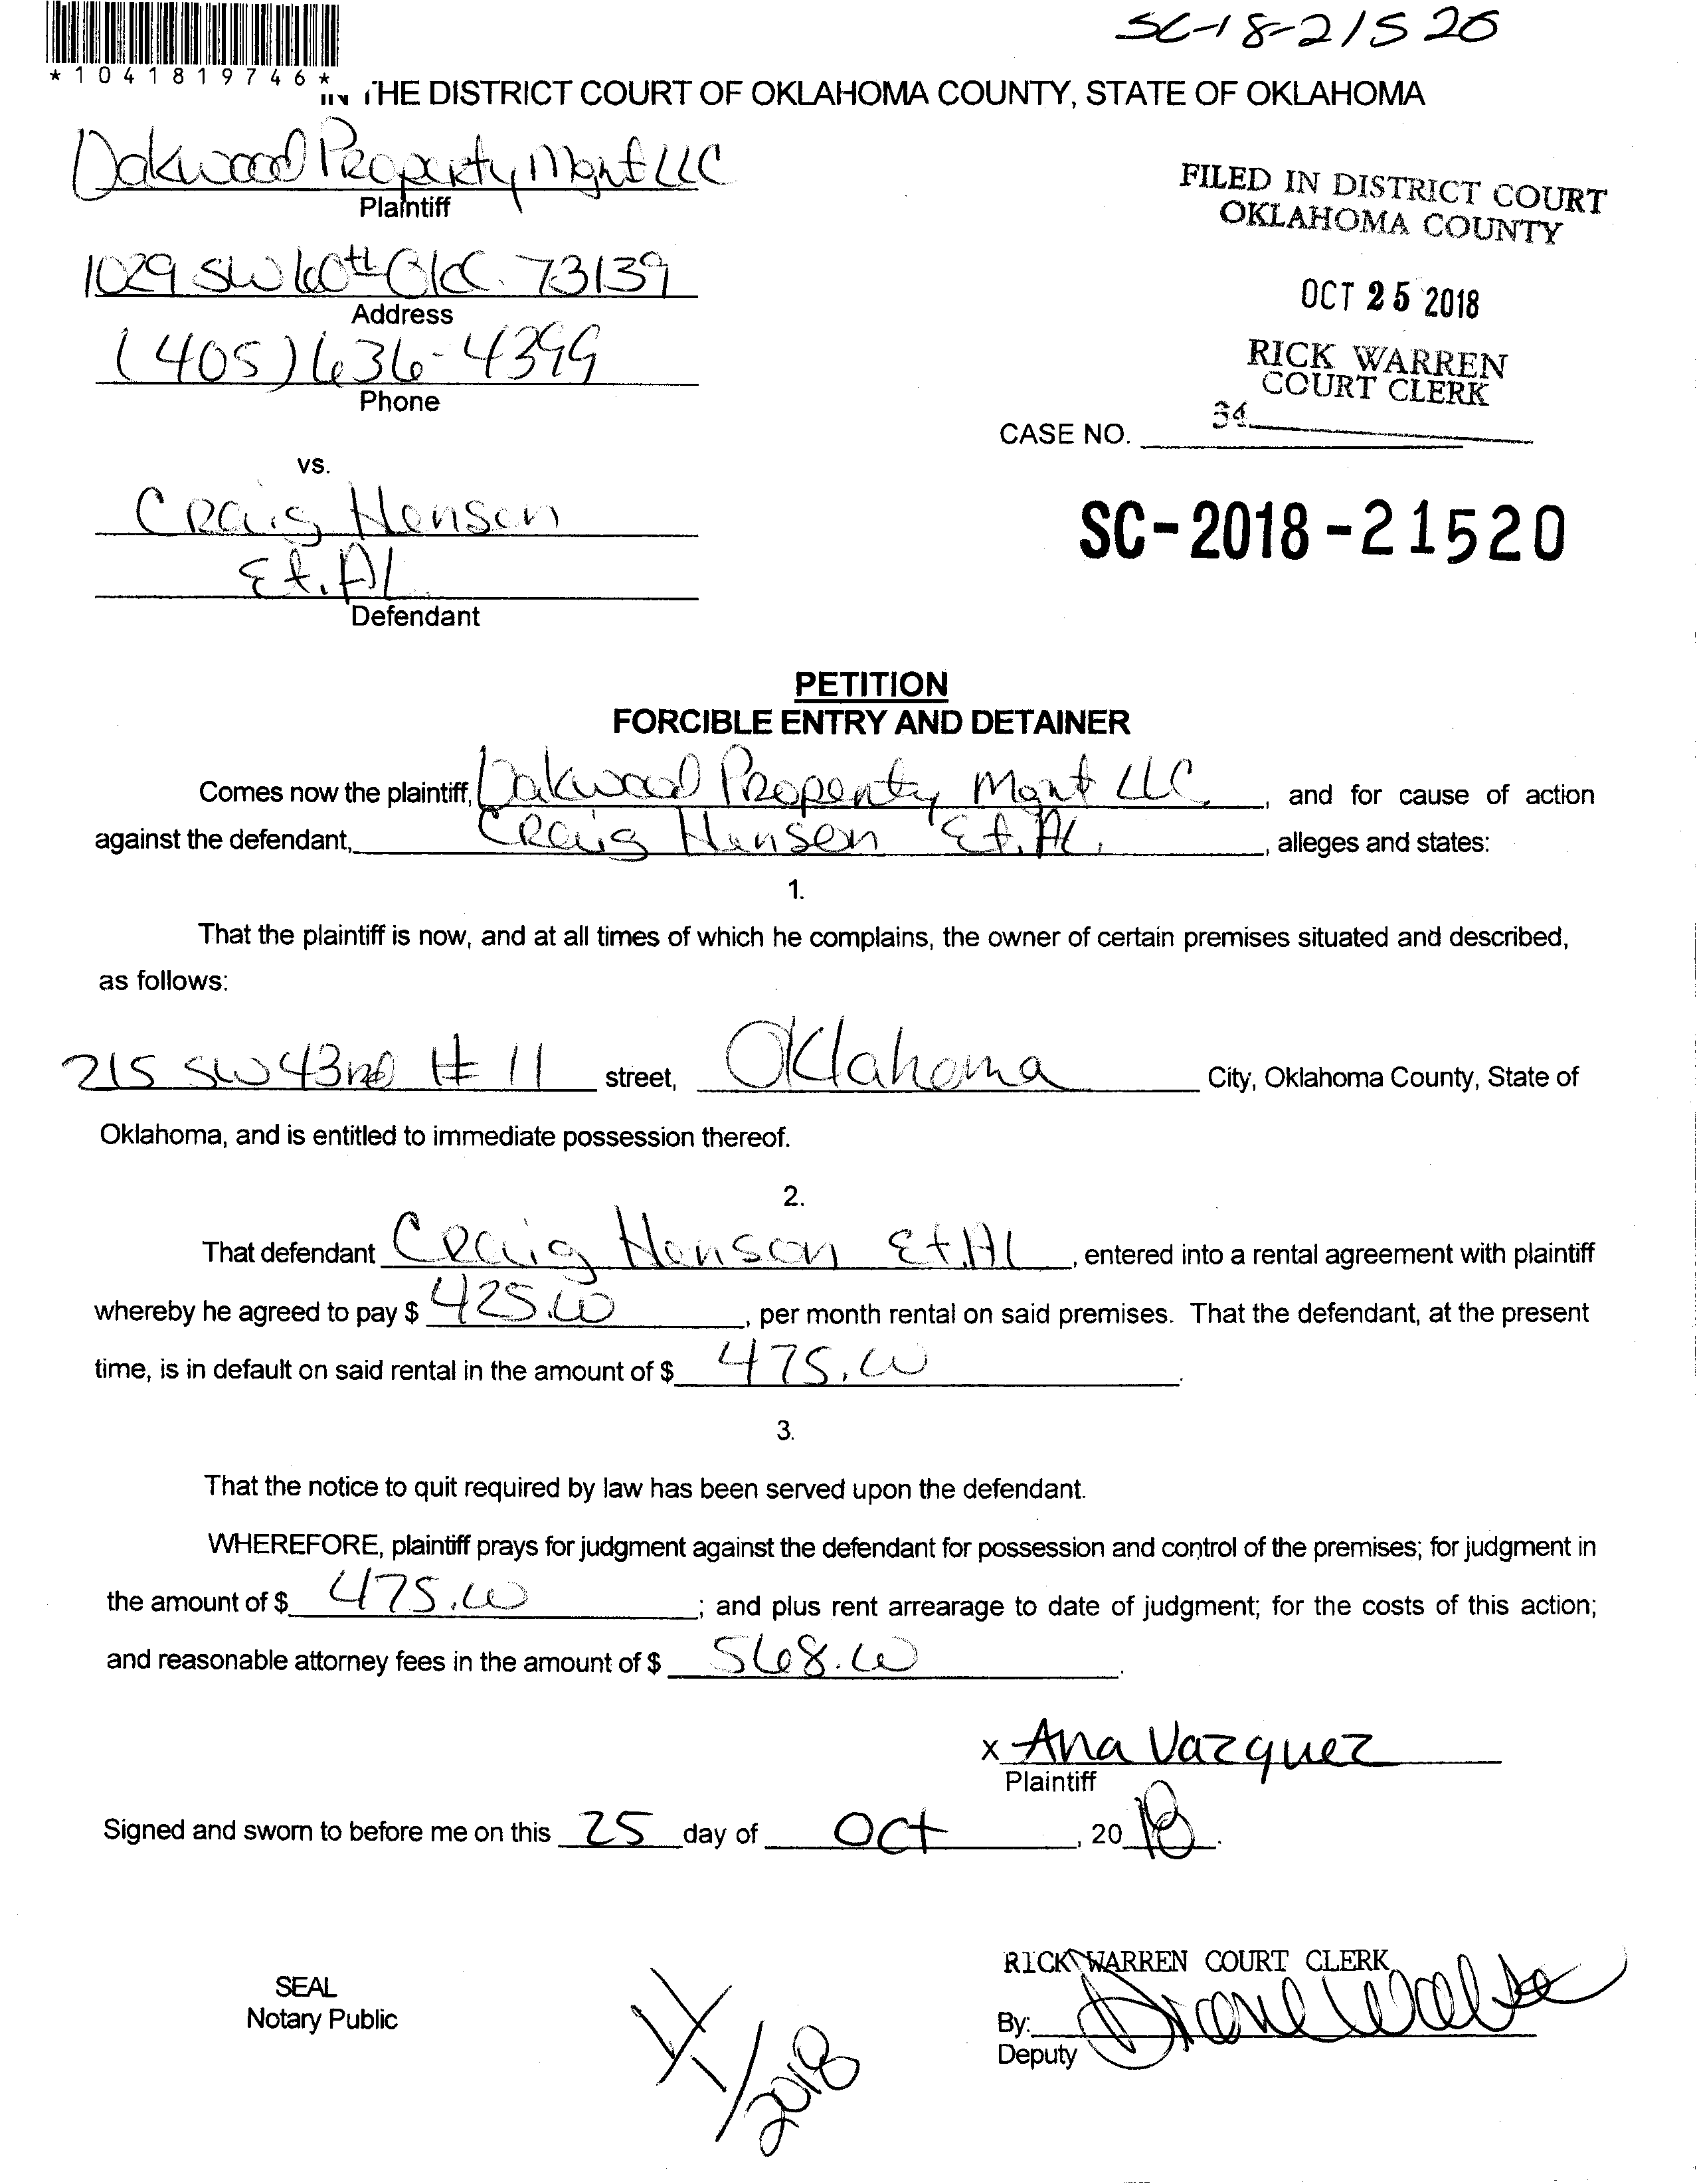 SC-18-21520
*1041819746*
IN THE DISTRICT COURT OF OKLAHOMA COUNTY, STATE OF OKLAHOMA
Oakwood Property Mgmt LLC
Plaintiff
FILED IN DISTRICT COURT
OKLAHOMA COUNTY
1029 SW 60th OKC. 73139
Address
OCT 25 2018
(405) 636-4399
Phone
RICK WARREN
COURT CLERK
34
CASE NO.
vs.
Craig Henson
Et. AL.
Defendant
SC-2018-21520
PETITION
FORCIBLE ENTRY AND DETAINER
Comes now the plaintiff, Oakwood Property Mgmt LLC, and for cause of action
against the defendant, Craig Henson Et. AL., alleges and states:
1.
That the plaintiff is now, and at all times of which he complains, the owner of certain premises situated and described,
as follows:
215 SW 43rd # 11 street, Oklahoma City, Oklahoma County, State of
Oklahoma, and is entitled to immediate possession thereof.
2.
That defendant Craig Henson Et.AL, entered into a rental agreement with plaintiff
whereby he agreed to pay $ 425.00, per month rental on said premises. That the defendant, at the present
time, is in default on said rental in the amount of $ 475.00.
3.
That the notice to quit required by law has been served upon the defendant.
WHEREFORE, plaintiff prays for judgment against the defendant for possession and control of the premises; for judgment in
the amount of $ 475.00; and plus rent arrearage to date of judgment; for the costs of this action;
and reasonable attorney fees in the amount of $ 568.00.
x Ana Vazquez
Plaintiff
Signed and sworn to before me on this 25 day of Oct, 2018.
RICK WARREN COURT CLERK
SEAL
Notary Public
By:
Deputy
2018